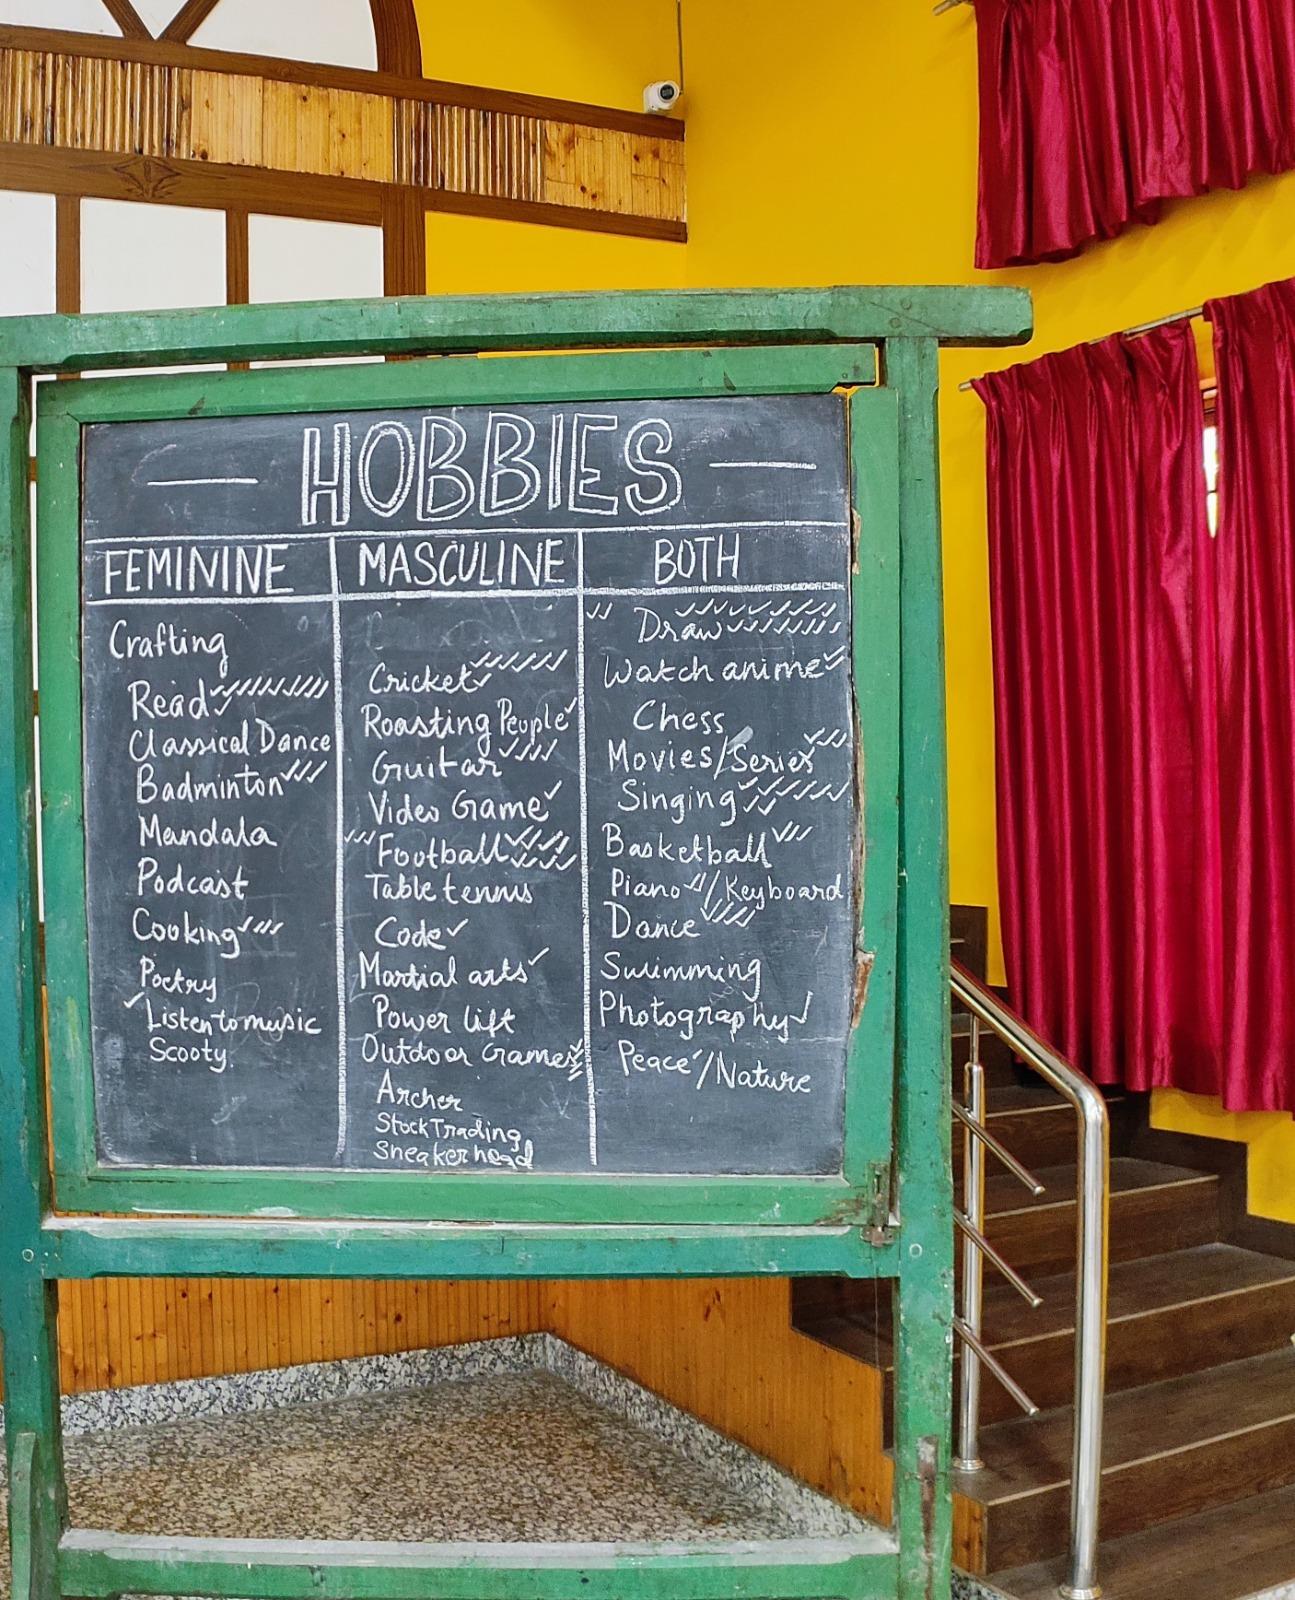 HOBBIES
FEMININE
Crafting
Read
Classical Dance
Badminton
Mandala
Podcast
Cooking
Poetry
Listen to music
Scooty.
MASCULINE
Cricket
Roasting People
Guitar
Video Game
Football
Table tennis
Code
Martial arts
Power lift
Outdoor Games
Archer
Stock Trading
Sneaker head
BOTH
Draw
Watch anime
Chess
Movies/Series
Singing
Basketball
Piano/Keyboard
Dance
Swimming
Photography
Peace/Nature